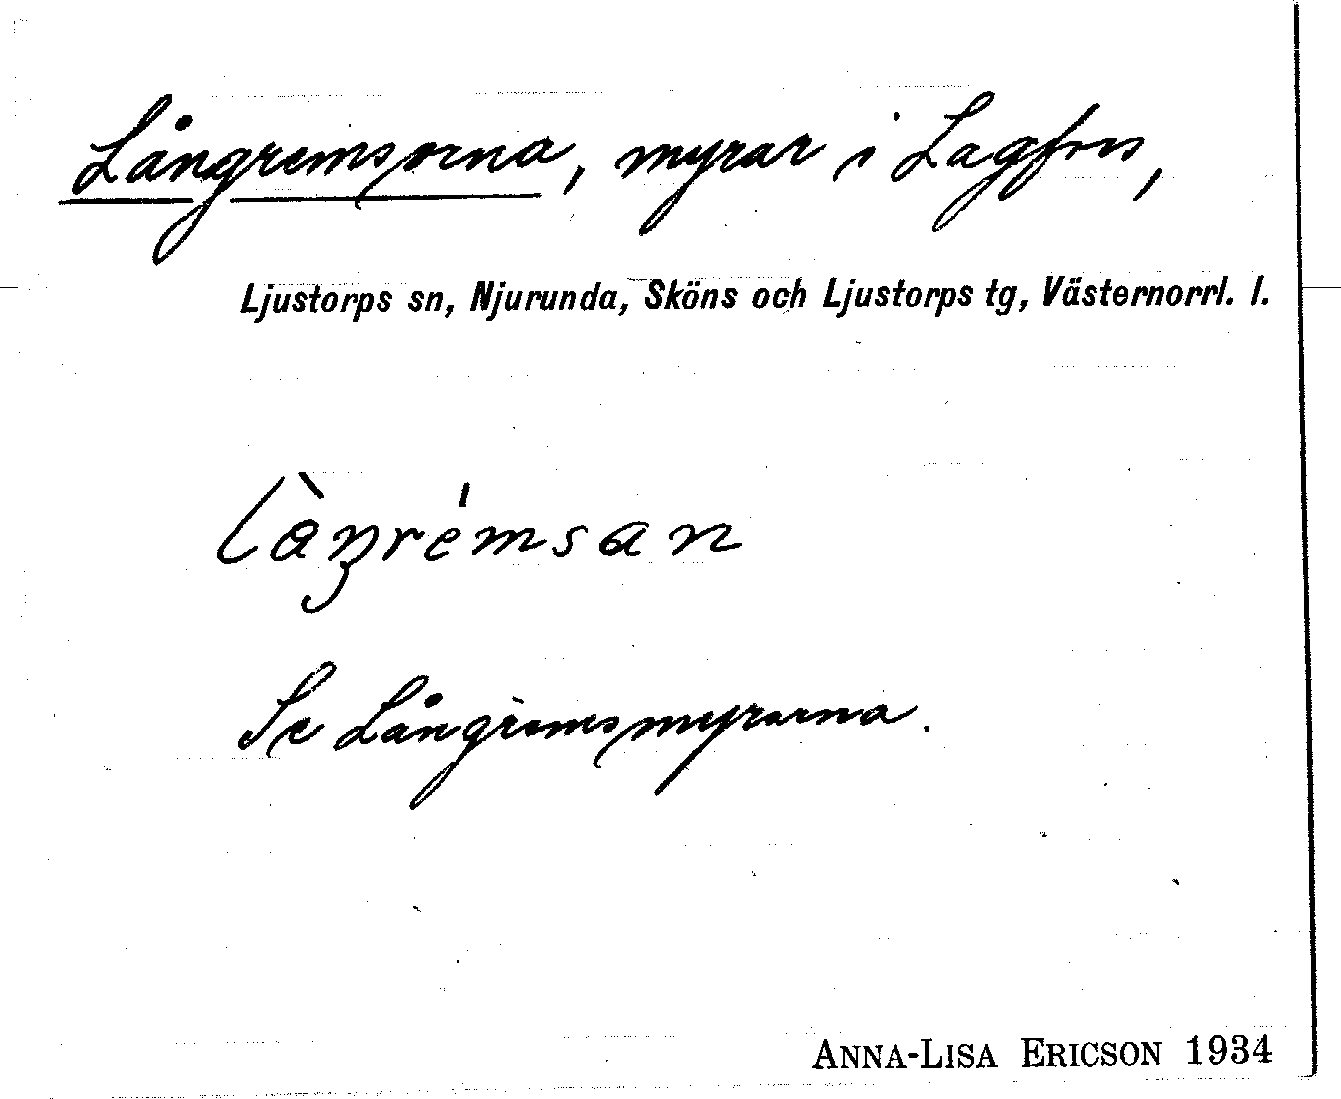 Långremsorna, myrar i Lagfors,
Ljustorps sn, Njurunda, Sköns och Ljustorps tg, Västernorrl. l.
làŋrémsan
Se Långremsmyrarna.
ANNA-LISA ERICSON 1934